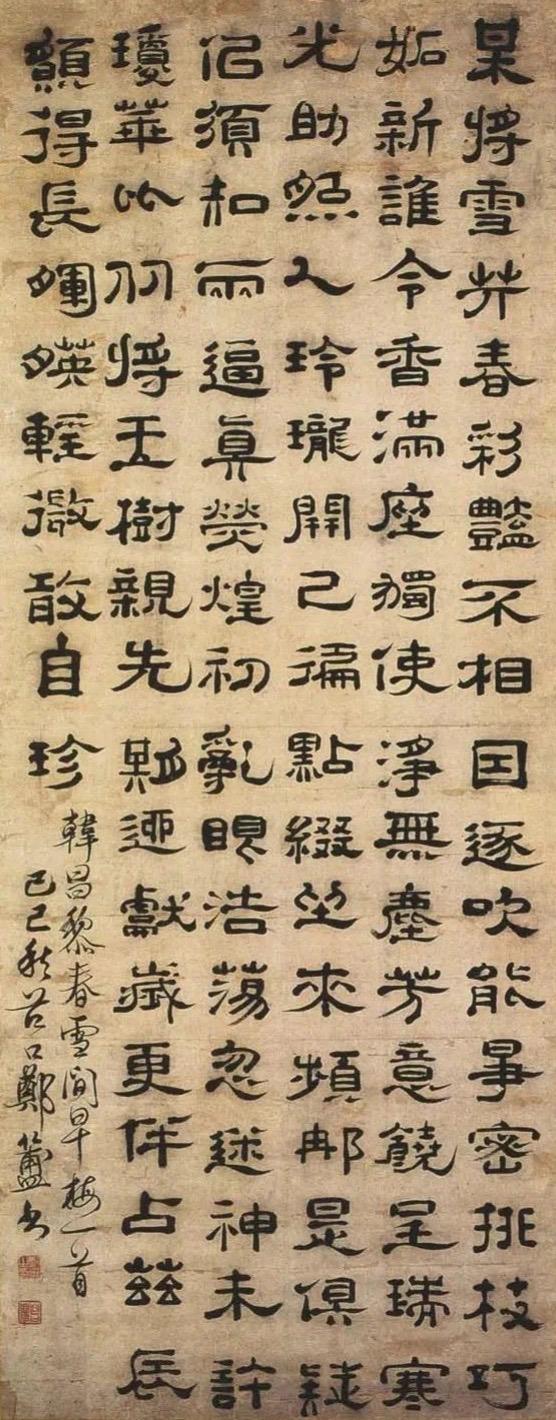 某將雪共春彩豔不相因逐吹能爭密排枝巧
妬新誰令香滿座獨使淨無塵芳意饒呈瑞寒
光助照人玲瓏開已徧點綴坐來頻那是俱疑
佀須知兩逼真熒煌初亂眼浩蕩忽迷神未許
瓊華比从將玉樹親先期迎獻歲更伴占茲辰
顥得長輝暎輕微敢自珍
韓昌黎春雪間早梅一首
己巳秋谷口鄭簠書